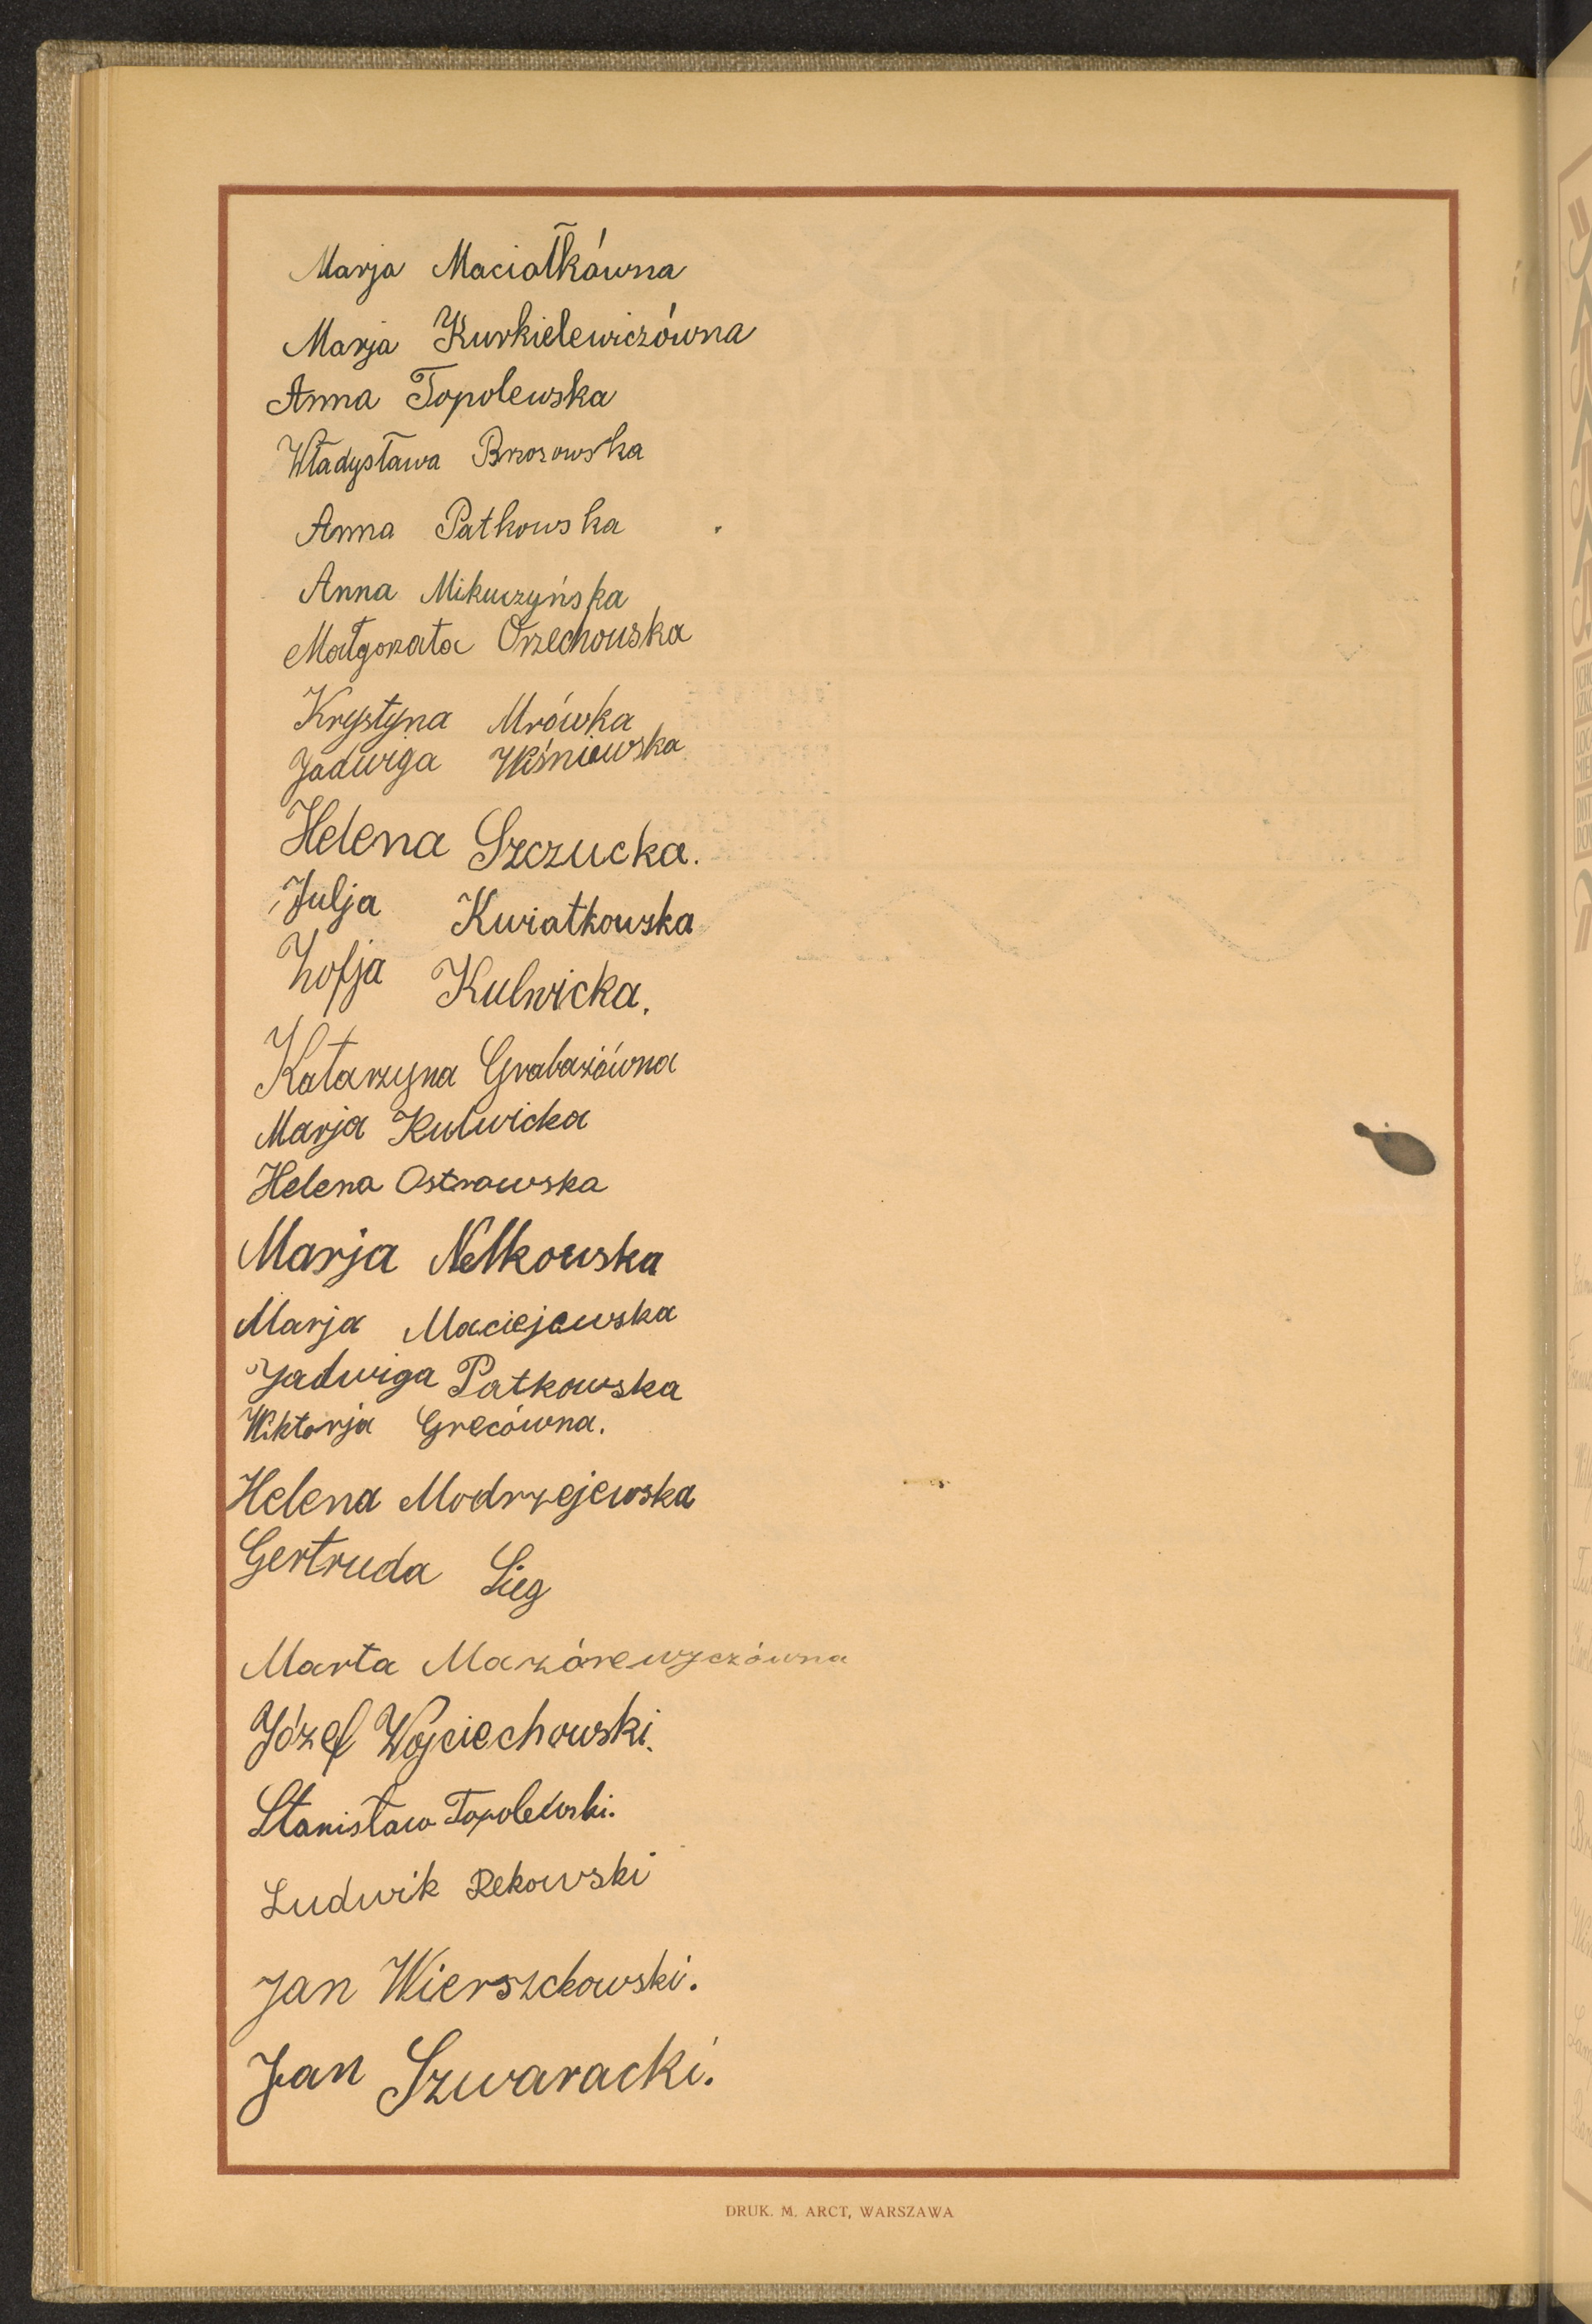 Marja Maciołkówna
Marja Kurkielewiczówna
Anna Topolewska
Władysława Brzozowska
Anna Patkowska
Anna Mikuczyńska
Małgorzata Orzechowska
Krystyna Mrówka
Jadwiga Wiśniewska
Helena Szczucka.
Julja Kwiatkowska
Zofja Kulwicka.
Katarzyna Grabażówna
Marja Kulwicka
Helena Ostrowska
Marja Nelkowska
Marja Maciejewska
Jadwiga Patkowska
Wiktorja Grecówna.
Helena Modrzejewska
Gertruda Sieg
Marta Mazórewyczówna
Józef Wojciechowski.
Stanisław Topolewski.
Ludwik Rekowski
Jan Wierszckowski.
Jan Szwaracki.
DRUK. M. ARCT, WARSZAWA